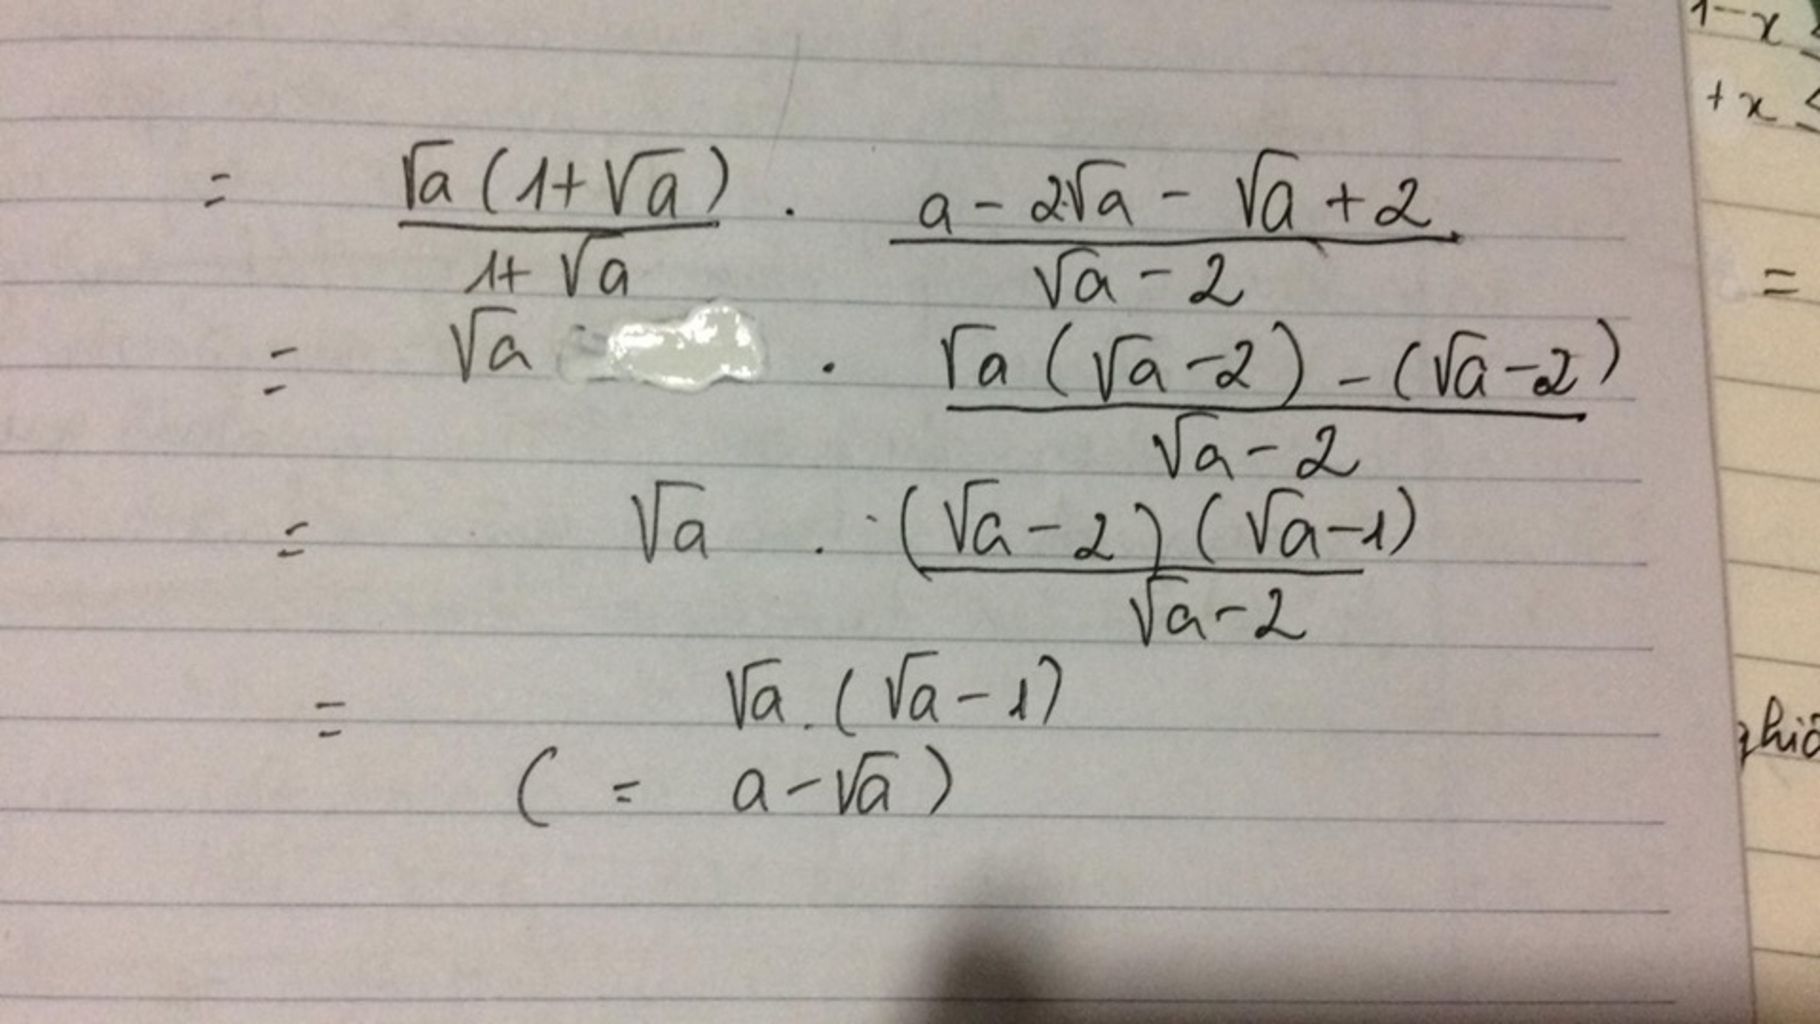 = √a (1+√a) / 1+√a . a - 2√a - √a + 2 / √a - 2
= √a . √a (√a - 2) - (√a - 2) / √a - 2
= √a . (√a - 2) (√a - 1) / √a - 2
= √a . (√a - 1)
( = a - √a )
1 - x ≤
+ x ≤
=